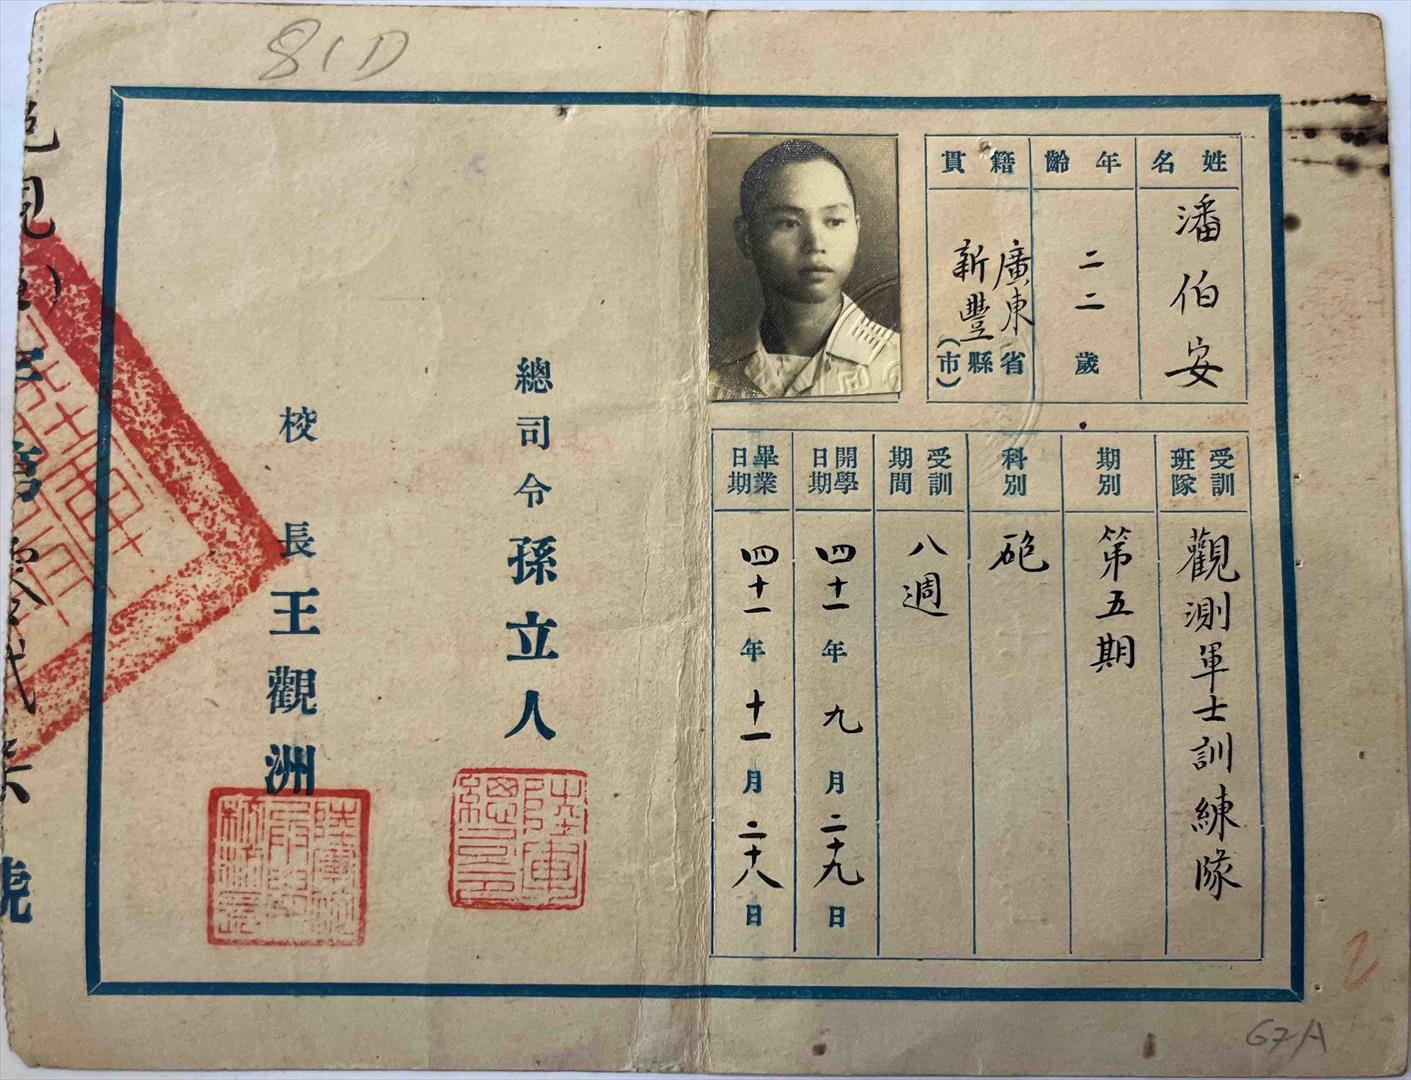 81D
姓名
潘伯安
年齡
二二歲
籍貫
廣東省
新豐縣(市)
受訓班隊
觀測軍士訓練隊
期別
第五期
科別
砲
受訓期間
八週
開學日期
四十一年九月二十九日
畢業日期
四十一年十一月二十八日
總司令孫立人
校長王觀洲
號
2
67A